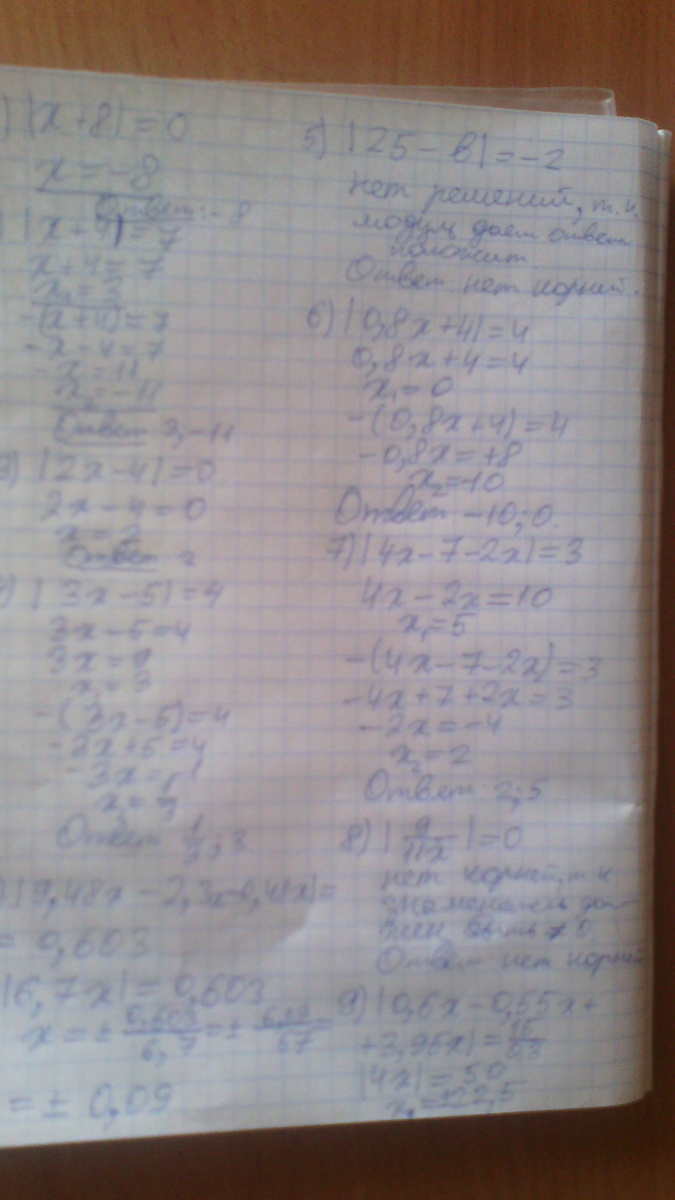 ) |x+8| = 0
x = -8
Ответ: -8
|x+4| = 7
x+4 = 7
x₁ = 3
-(x+4) = 7
-x-4 = 7
-x = 11
x₂ = -11
Ответ 3; -11
3) |2x-4| = 0
2x-4 = 0
x = 2
Ответ 2
) |3x-5| = 4
3x-5 = 4
3x = 9
x₁ = 3
-(3x-5) = 4
-3x+5 = 4
Ответ ; 3
= 0,603
|6,7x| = 0,603
x = ± 0,603/6,7 = ±
= ± 0,09
5) |25-в| = -2
нет решений, т.к.
модуль дает ответ
положит
Ответ: нет корней.
6) |0,8x+4| = 4
0,8x+4 = 4
x₁ = 0
-(0,8x+4) = 4
-0,8x = +8
x₂ = -10
Ответ -10; 0.
7) |4x-7-2x| = 3
4x-2x = 10
x₁ = 5
-(4x-7-2x) = 3
-4x+7+2x = 3
-2x = -4
x₂ = 2
Ответ 2; 5
8) | 9/11x | = 0
нет корней, т к
знаменатель дол-
жен быть ≠ 0
Ответ нет корней
9) |0,6x-0,55x+
+3,95x| =
|4x| = 50